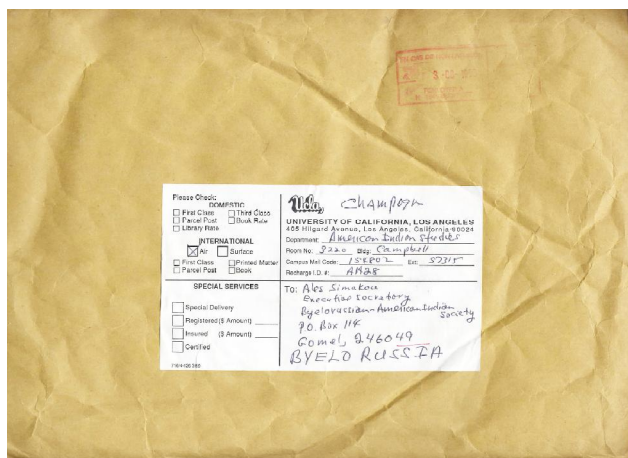 Please Check:
DOMESTIC
First Class Third Class
Parcel Post Book Rate
Library Rate
INTERNATIONAL
Air Surface
First Class Printed Matter
Parcel Post Book
SPECIAL SERVICES
Special Delivery
Registered ($ Amount)
Insured ($ Amount)
Certified
Ucla Champagn
UNIVERSITY OF CALIFORNIA, LOS ANGELES
405 Hilgard Avenue, Los Angeles, California 90024
Department: American Indian Studies
Room No: 3220 Bldg: Campbell
Campus Mail Code: Ext: 57315
Recharge I.D. #: AM28
To: Ales Simakou
Executive secretary
Byelorussian-American Indian
Society
P.O. Box 114
Gomel, 246049
BYELORUSSIA